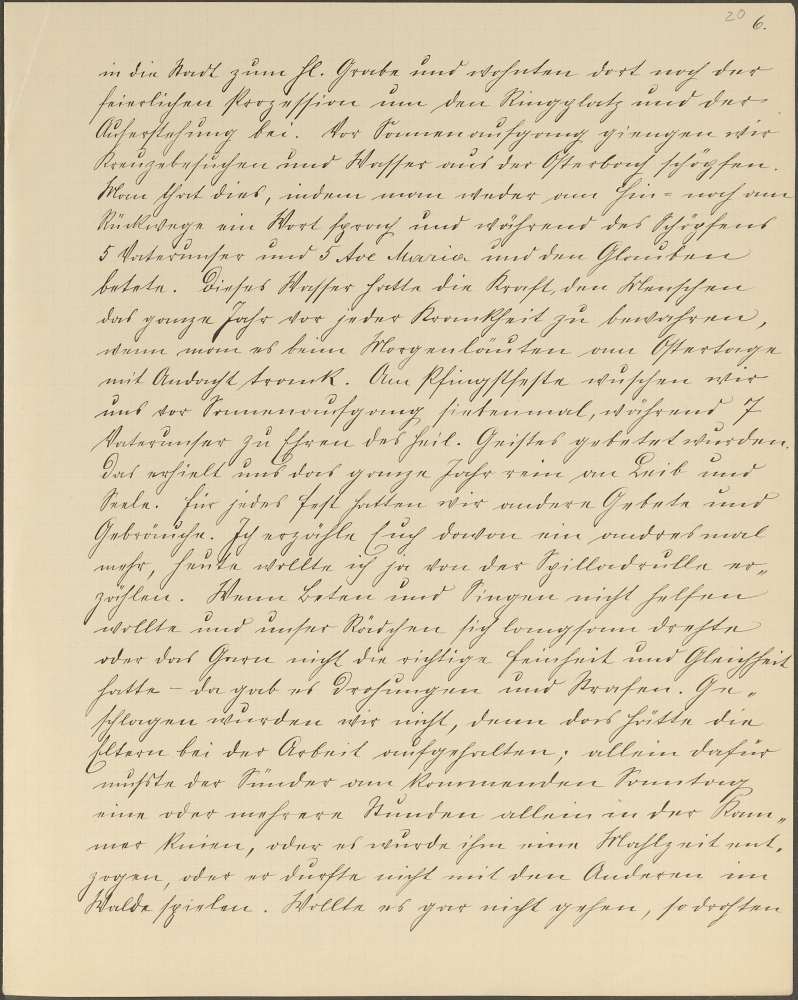 20 6.
in die Stadt zum hl. Grabe und wohnten dort noch der
feierlichen Prozession um den Ringplatz und der
Auferstehung bei. Vor Sonnenaufgang giengen wir
Kreuzebesuchen und Wasser aus der Osterbach schöpfen.
Man that dies, indem man weder am Hin- noch am
Rückwege ein Wort sprach und während des Schöpfens
5 Vaterunser und 5 Ave Maria und den Glauben
betete. Dieses Wasser hatte die Kraft, den Menschen
das ganze Jahr vor jeder Krankheit zu bewahren,
wenn man es beim Morgenläuten am Ostertage
mit Andacht trank. Am Pfingstfeste wuschen wir
uns vor Sonnenaufgang siebenmal, während 7
Vaterunser zu Ehren des heil. Geistes gebetet wurden.
Das erhielt uns das ganze Jahr rein an Leib und
Seele. Für jedes Fest hatten wir andere Gebete und
Gebräuche. Ich erzähle Euch davon ein andresmal
mehr, heute wollte ich ja von der Spilladrulla er-
zählen. Wenn Beten und Singen nicht helfen
wollte und unser Rädchen sich langsam drehte
oder das Garn nicht die richtige Feinheit und Gleichheit
hatte – da gab es Drohungen und Strafen. Ge-
schlagen wurden wir nicht, denn das hätte die
Eltern bei der Arbeit aufgehalten; allein dafür
mußte der Sünder am kommenden Sonntag
eine oder mehrere Stunden allein in der Kam-
mer knien, oder es wurde ihm eine Mahlzeit ent-
zogen, oder er durfte nicht mit den Anderen im
Walde spielen. Wollte es gar nicht gehen, so drohten